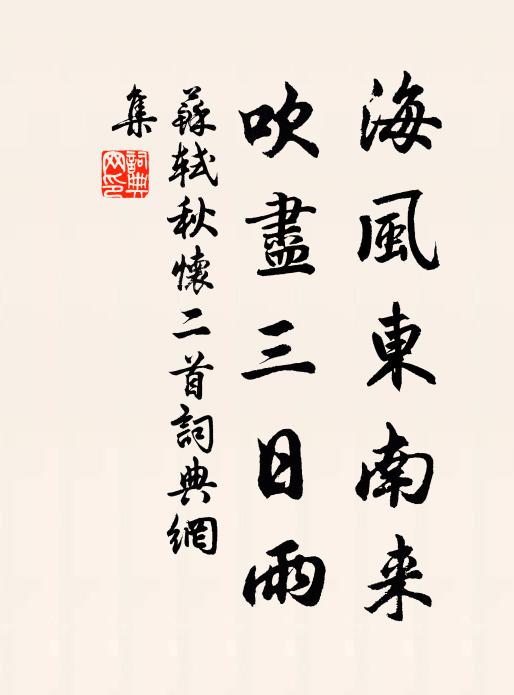 海風東南来
吹盡三日雨
蘇軾秋懷二首詞典網
集
詞典
网印